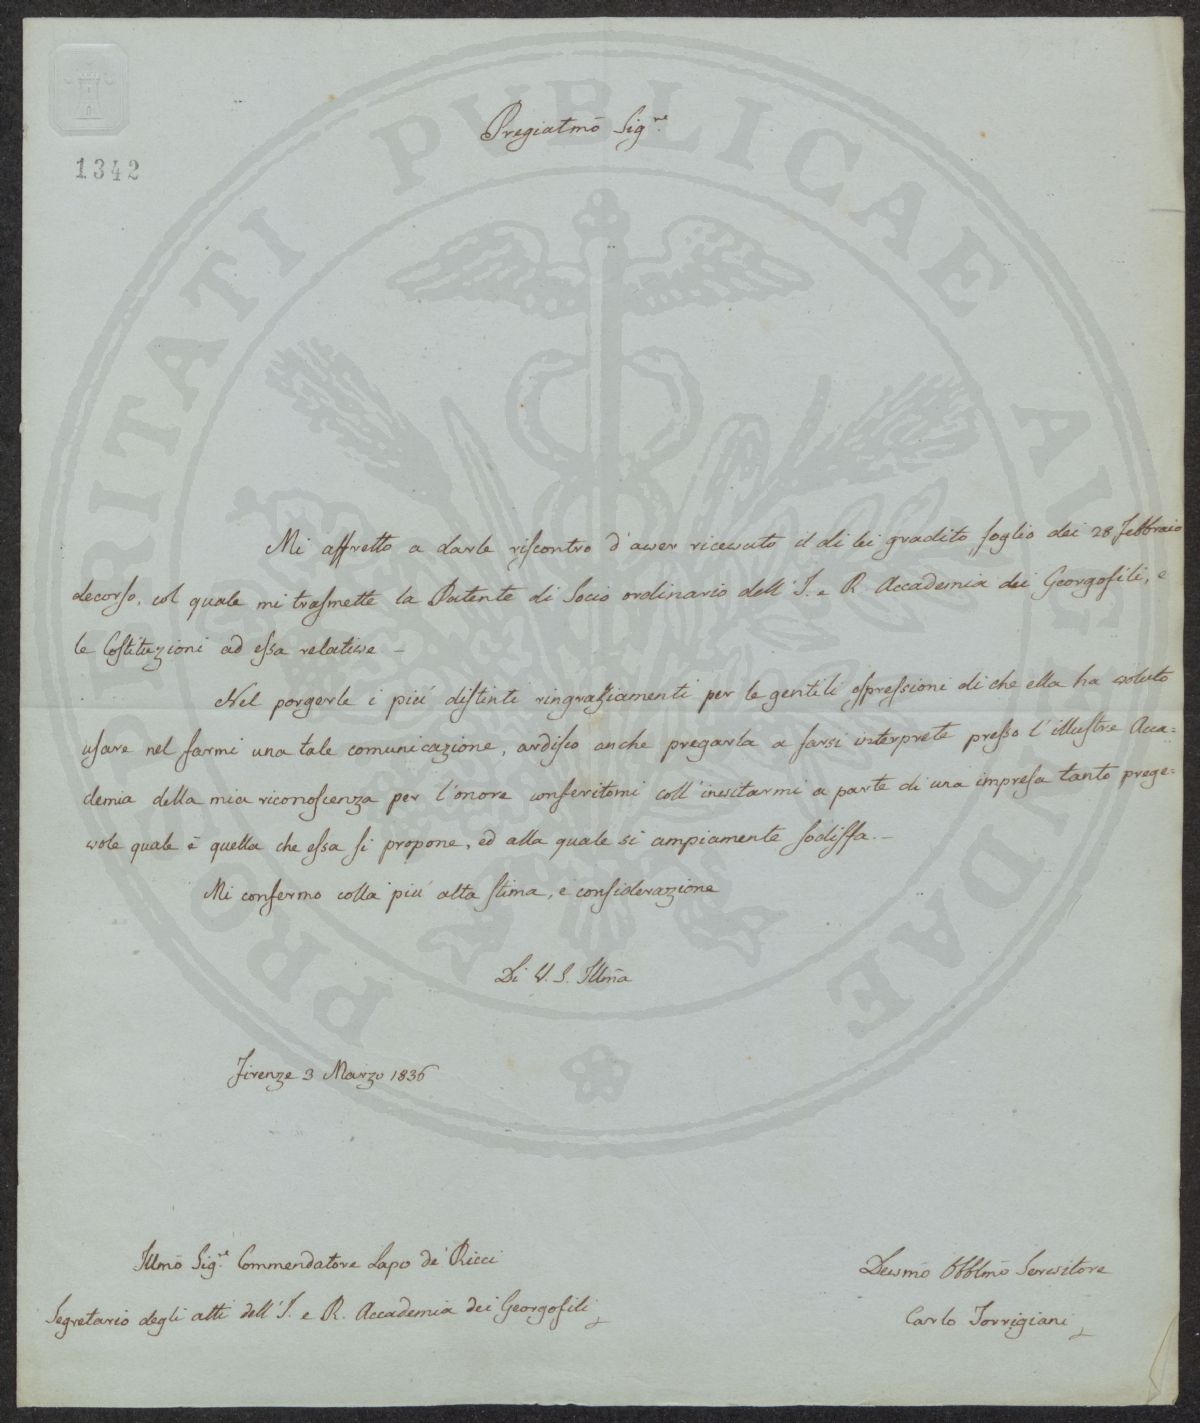 Pregiatmo Sigre.
1342
PROSPERITATI PUBLICAE AUGENDAE
Mi affretto a darle riscontro d'aver ricevuto il di lei gradito foglio dei 28 Febbraio
decorso, col quale mi trasmette la Patente di Socio ordinario dell' I. e R. Accademia dei Georgofili, e
le Costituzioni ad essa relative —
Nel porgerle i più distinti ringraziamenti per le gentili espressioni di che ella ha voluto
usare nel farmi una tale comunicazione, ardisco anche pregarla a farsi interprete presso l'illustre Acca=
demia della mia riconoscenza per l'onore conferitomi coll'invitarmi a parte di una impresa tanto prege=
vole quale è quella che essa si propone, ed alla quale sì ampiamente sodisfa. —
Mi confermo colla più alta stima, e considerazione
Di V. S. Illma
Firenze 3 Marzo 1836
Illmo Sigre. Commendatore Lapo de' Ricci
Segretario degli atti dell' I. e R. Accademia dei Georgofili
Devsmo Obblmo Servitore
Carlo Torrigiani